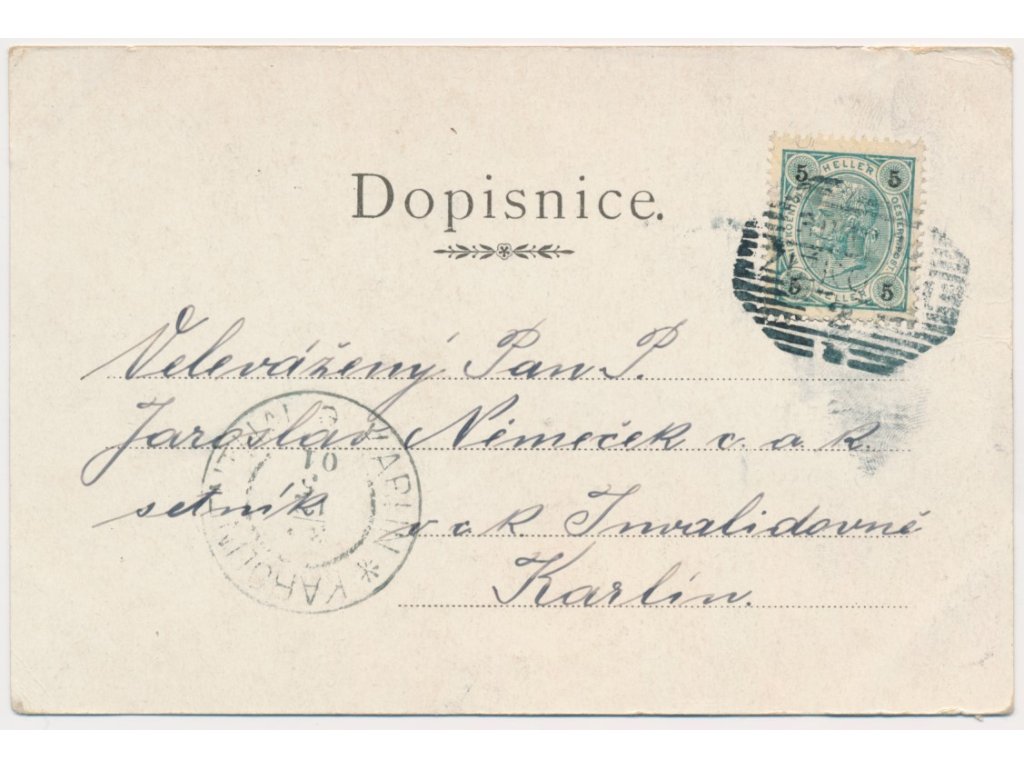 Dopisnice.
5 HELLER 5
5 HELLER 5
Velevážený Pan P.
Jaroslav Němeček c. a k.
setník v c k. Invalidovně
Karlín.
KARLÍN * KAROLINENTHAL
01